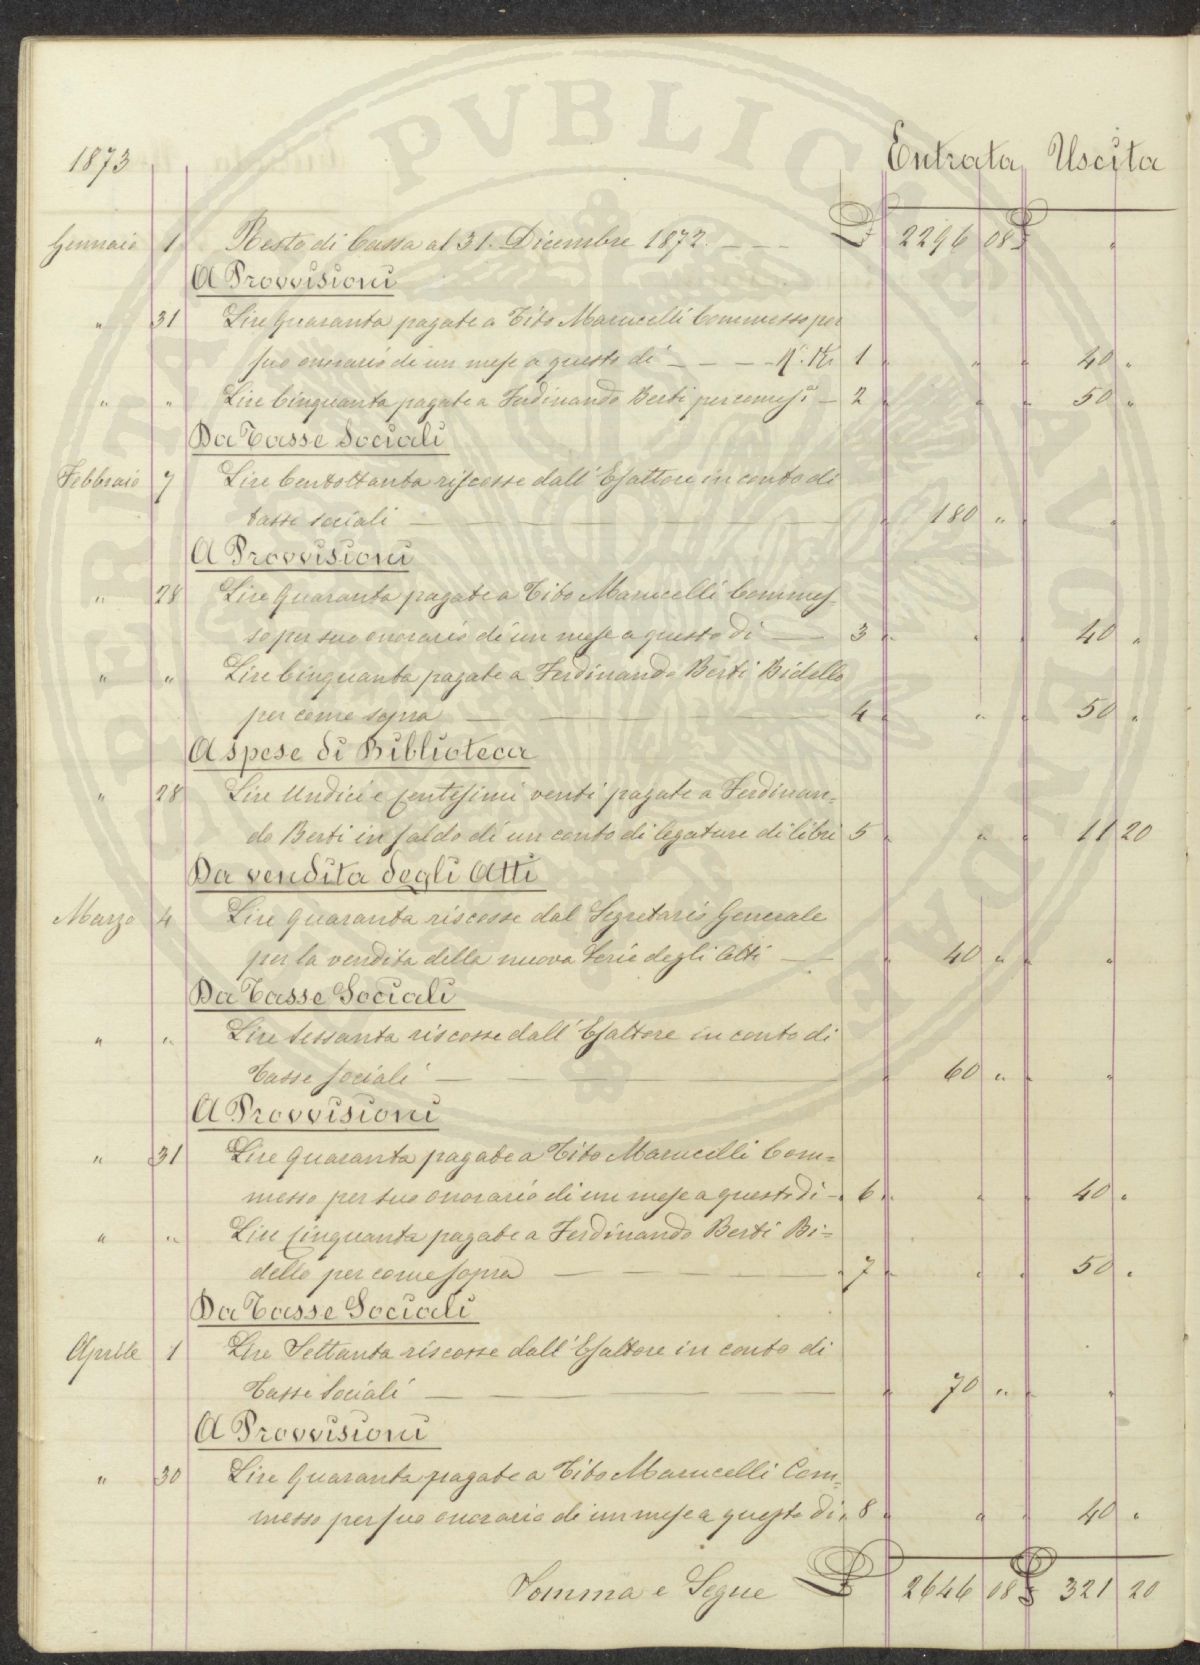 PVBLICAE
PROSPERITATIS AVGENDAE
1873 Entrata Uscita
Gennaio 1 Resto di Cassa al 31. Dicembre 1872. £ 2296 08 £ "
A Provvisioni
" 31 Lire Quaranta pagate a Tito Marucelli Commesso per
suo onorario di un mese a questo dì — N.° 1 " " " 40 "
" " Lire Cinquanta pagate a Ferdinando Berti per come s.ª — 2 " " 50 "
Da Tasse Sociali
Febbraio 7 Lire Centottanta riscosse dall'Esattore in conto di
tasse sociali — " 180 " " "
A Provvisioni
" 28 Lire Quaranta pagate a Tito Marucelli Commes-
so per suo onorario di un mese a questo dì — 3 " " " 40 "
" " Lire Cinquanta pagate a Ferdinando Berti Bidello
per come sopra — 4 " " " 50 "
A spese di Biblioteca
" 28 Lire Undici e Centesimi venti pagate a Ferdinan=
do Berti in saldo di un conto di legature di libri 5 " " " 11 20
Da vendita degli Atti
Marzo 4 Lire Quaranta riscosse dal Segretario Generale
per la vendita della nuova Serie degli Atti — " 40 " " "
Da Tasse Sociali
" " Lire Sessanta riscosse dall'Esattore in conto di
Tasse sociali — " 60 " " "
A Provvisioni
" 31 Lire Quaranta pagate a Tito Marucelli Com=
messo per suo onorario di un mese a questo dì — 6 " " " 40 "
" " Lire Cinquanta pagate a Ferdinando Berti Bi=
dello per come sopra — 7 " " " 50 "
Da Tasse Sociali
Aprile 1 Lire Settanta riscosse dall'Esattore in conto di
Tasse Sociali — " 70 " " "
A Provvisioni
" 30 Lire Quaranta pagate a Tito Marucelli Com=
messo per suo onorario di un mese a questo dì " 8 " " " 40 "
Somma e Segue £ 2646 08 £ 321 20